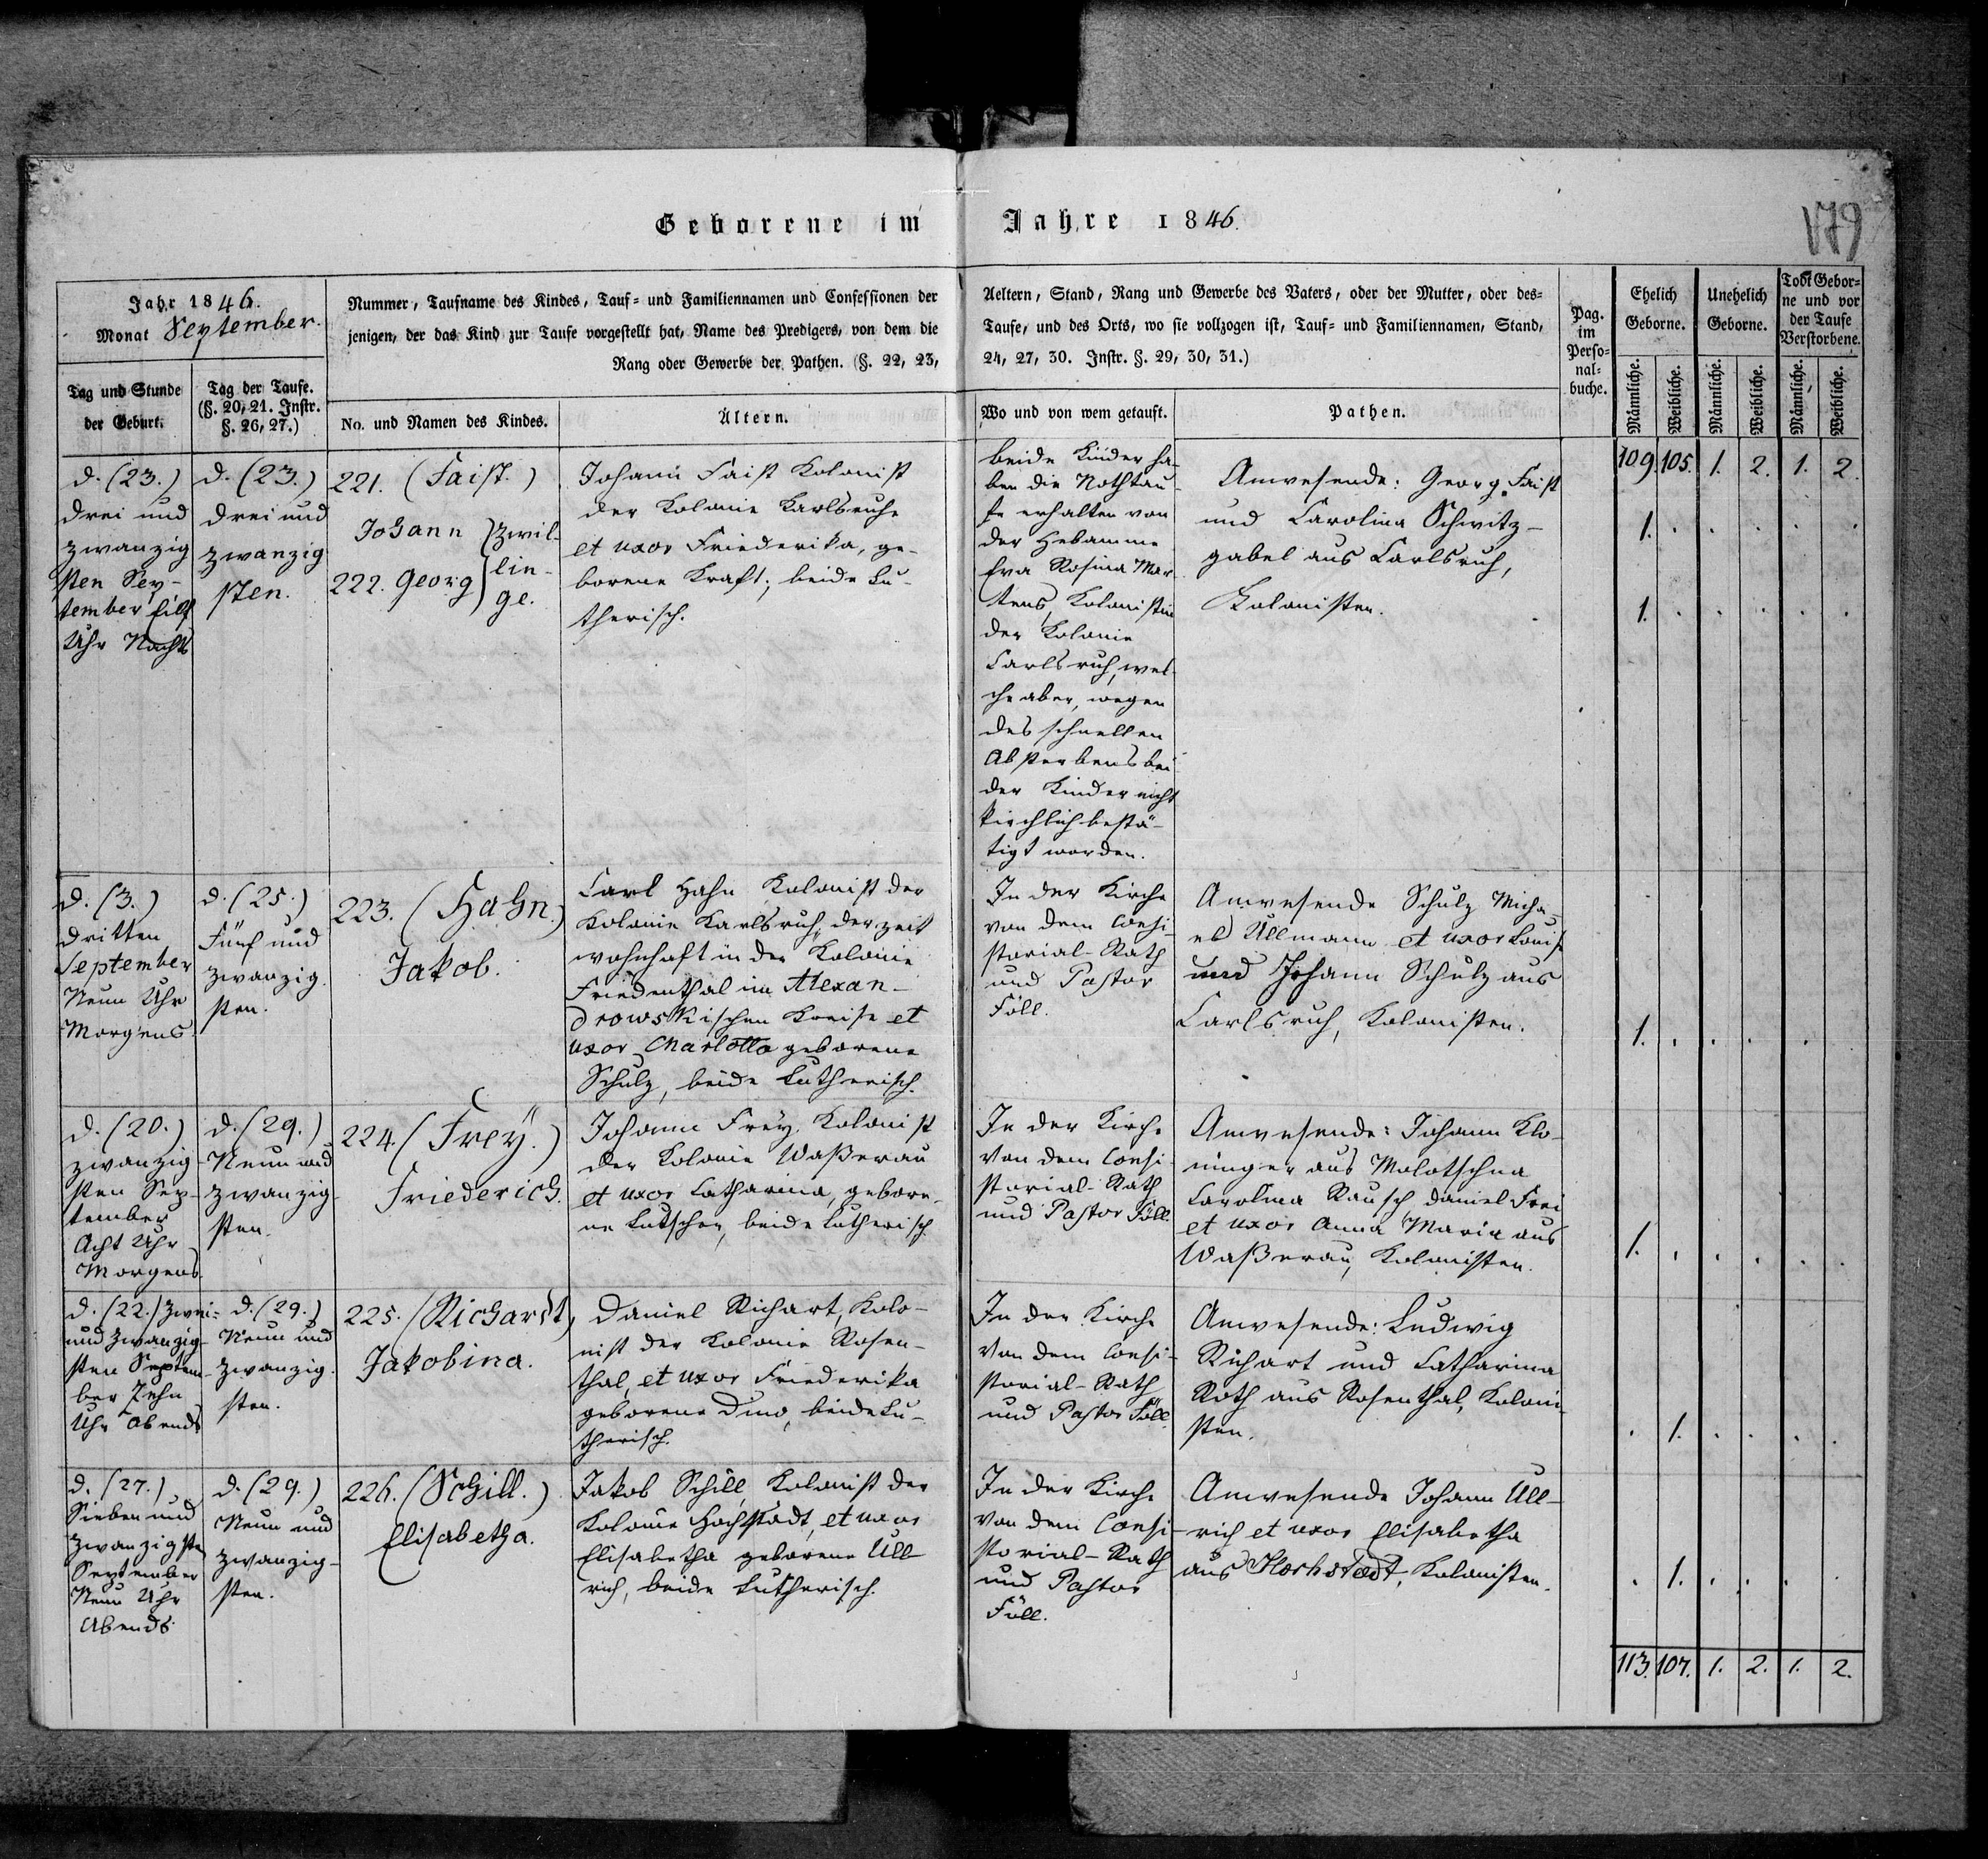 Geborene im Jahre 1846.
179
Jahr 1846.
Monat September.
Tag und Stunde
der Geburt.
Tag der Taufe.
(§. 20, 21. Instr.
§. 26, 27.)
Nummer, Taufname des Kindes, Tauf= und Familiennamen und Confessionen der
jenigen, der das Kind zur Taufe vorgestellt hat, Name des Predigers, von dem die
Rang oder Gewerbe der Pathen. (§. 22, 23,
No. und Namen des Kindes.
Ältern.
Aeltern, Stand, Rang und Gewerbe des Vaters, oder der Mutter, oder des=
Taufe, und des Orts, wo sie vollzogen ist, Tauf= und Familiennamen, Stand,
24, 27, 30. Instr. §. 29, 30, 31.)
Wo und von wem getauft.
Pathen.
Pag.
im
Perso=
nal=
buche.
Ehelich
Geborne.
Unehelich
Geborne.
Todt Gebor=
ne und vor
der Taufe
Verstorbene.
Männliche.
Weibliche.
Männliche.
Weibliche.
Männliche.
Weibliche.
d. (23.)
drei und
zwanzig
sten Sep-
tember Eilf
Uhr Nachts
d. (23.)
drei und
zwanzig
sten.
221. (Faist.)
Johann } Zwil-
222. Georg } lin-
ge.
Johann Faist Kolonist
der Kolonie Karlsruhe
et uxor Friederika, ge-
borene Kraft; beide Lu-
therisch.
beide Kinder ha-
ben die Nothtau-
fe erhalten von
der Hebamme
Eva Rosina Mar-
tens, Kolonistin
der Kolonie
Carlsruh, wel-
che aber, wegen
des schnellen
Absterbens bei-
der Kinder nicht
kirchlich bestä-
tigt worden.
Anwesende: Georg Faist
und Carolina Schwitz-
gabel aus Carlsruh,
Kolonisten.
109. 105. 1. 2. 1. 2.
1. . . . . .
1. . . . . .
d. (3.)
dritten
September
Neun Uhr
Morgens.
d. (25.)
Fünf und
zwanzig
sten.
223. (Hahn.)
Jakob.
Carl Hahn Kolonist der
Kolonie Karlsruh, der zeit
wohnhaft in der Kolonie
Friedenthal im Alexan-
drowskischen Kreise et
uxor Charlotta geborene
Schulz, beide Lutherisch.
In der Kirche
von dem Consi-
storial-Rath
und Pastor
Föll.
Anwesende Schulz Micha-
el Ullmann et uxor Louise
und Johann Schulz aus
Carlsruh, Kolonisten.
1. . . . .
d. (20.)
zwanzig
sten Sep-
tember
Acht Uhr
Morgens.
d. (29.)
Neun und
zwanzig-
sten.
224. (Freÿ.)
Friederich.
Johann Freÿ, Kolonist
der Kolonie Waßerau
et uxor Catharina, gebore-
ne Lutscher, beide Lutherisch
In der Kirche
von dem Consi-
storial-Rath
und Pastor Föll.
Anwesende: Johann Klo-
ninger aus Molotschna
Carolina Rausch, Daniel Frei
et uxor Anna Maria aus
Waßerau, Kolonisten.
1. . . . . .
d. (22.) Zwei-
und zwanzig-
sten Septem-
ber Zehn
Uhr Abends
d. (29.)
Neun und
zwanzig.
sten.
225. (Richardt)
Jakobina.
Daniel Richart, Kolo-
nist der Kolonie Rosen-
thal, et uxor Friederika
geborene Duno, beide Lu-
therisch.
In der Kirche
von dem Consi-
storial-Rath
und Pastor Föll.
Anwesende: Ludwig
Richart und Catharina
Roth aus Rosenthal, Koloni-
sten.
. 1. . . . .
d. (27.)
Sieben und
zwanzigsten
September
Neun Uhr
Abends.
d. (29.)
Neun und
zwanzig-
sten.
226. (Schill.)
Elisabetha.
Jakob Schill, Kolonist der
Kolonie Hochstädt, et uxor
Elisabetha geborene Ull-
rich, beide Lutherisch.
In der Kirche
von dem Consi-
storial-Rath
und Pastor
Föll.
Anwesende Johann Ull-
rich et uxor Elisabetha
aus Hochstædt, Kolonisten.
. 1. . . . .
113. 107. 1. 2. 1. 2.